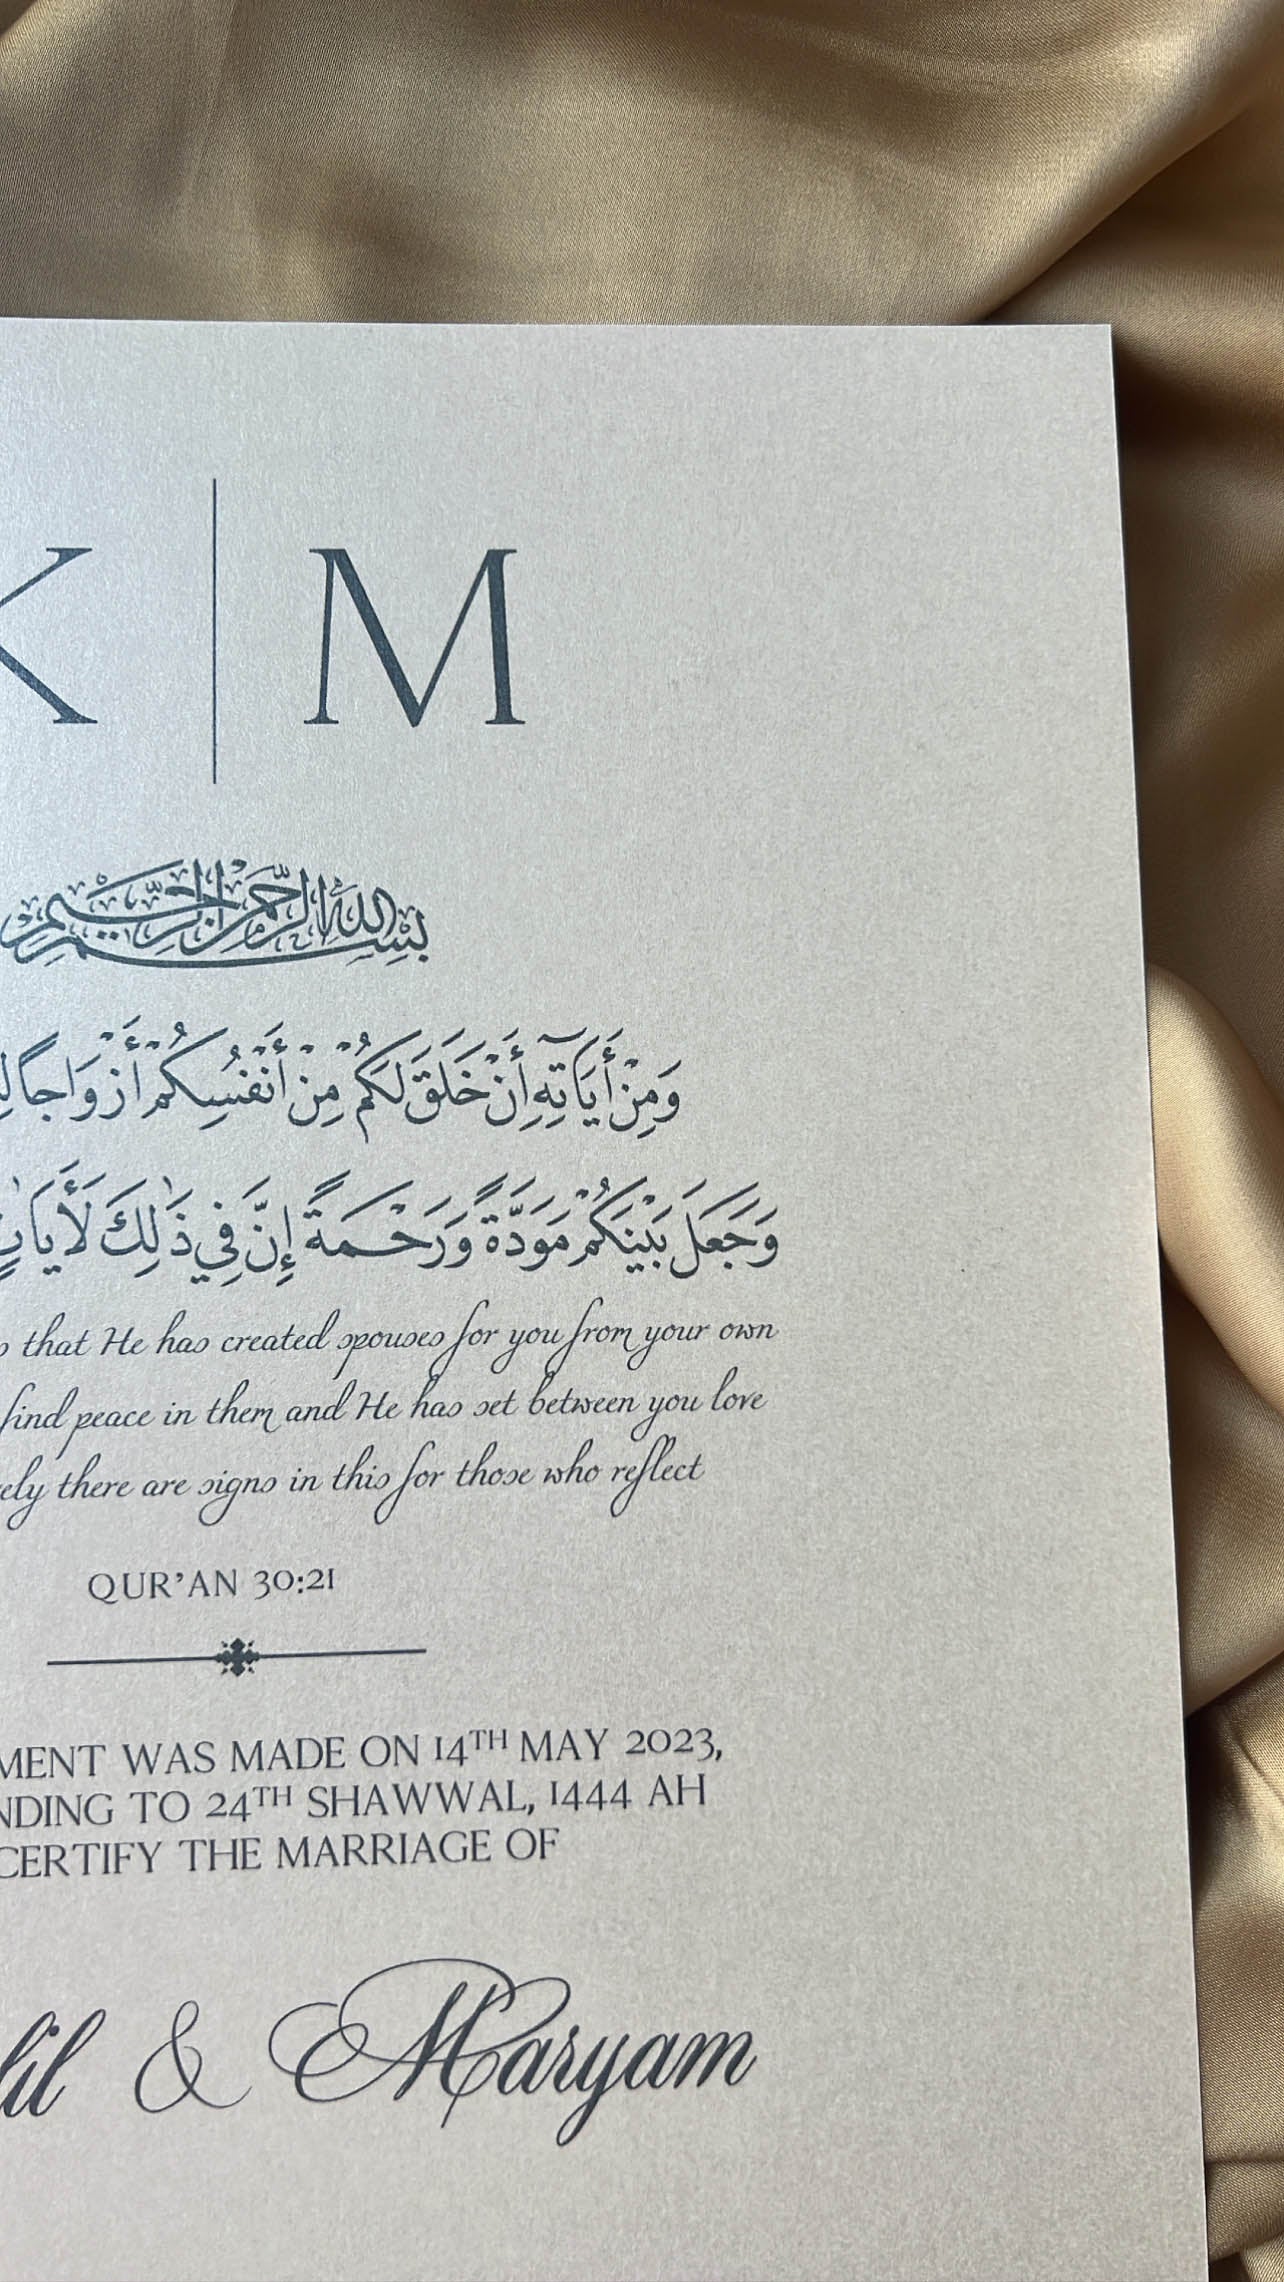 K | M
بِسْمِ اللهِ الرَّحْمٰنِ الرَّحِيْمِ
وَمِنْ أَيَاتِهِٓ أَنْ خَلَقَ لَكُمْ مِنْ أَنْفُسِكُمْ أَزْوَاجًا
وَجَعَلَ بَيْنَكُمْ مَوَدَّةً وَرَحْمَةً إِنَّ فِي ذٰلِكَ لَأَيَاتٍ
that He has created spouses for you from your own
find peace in them and He has set between you love
ely there are signs in this for those who reflect
QUR'AN 30:21
MENT WAS MADE ON 14TH MAY 2023,
NDING TO 24TH SHAWWAL, 1444 AH
CERTIFY THE MARRIAGE OF
lil & Maryam